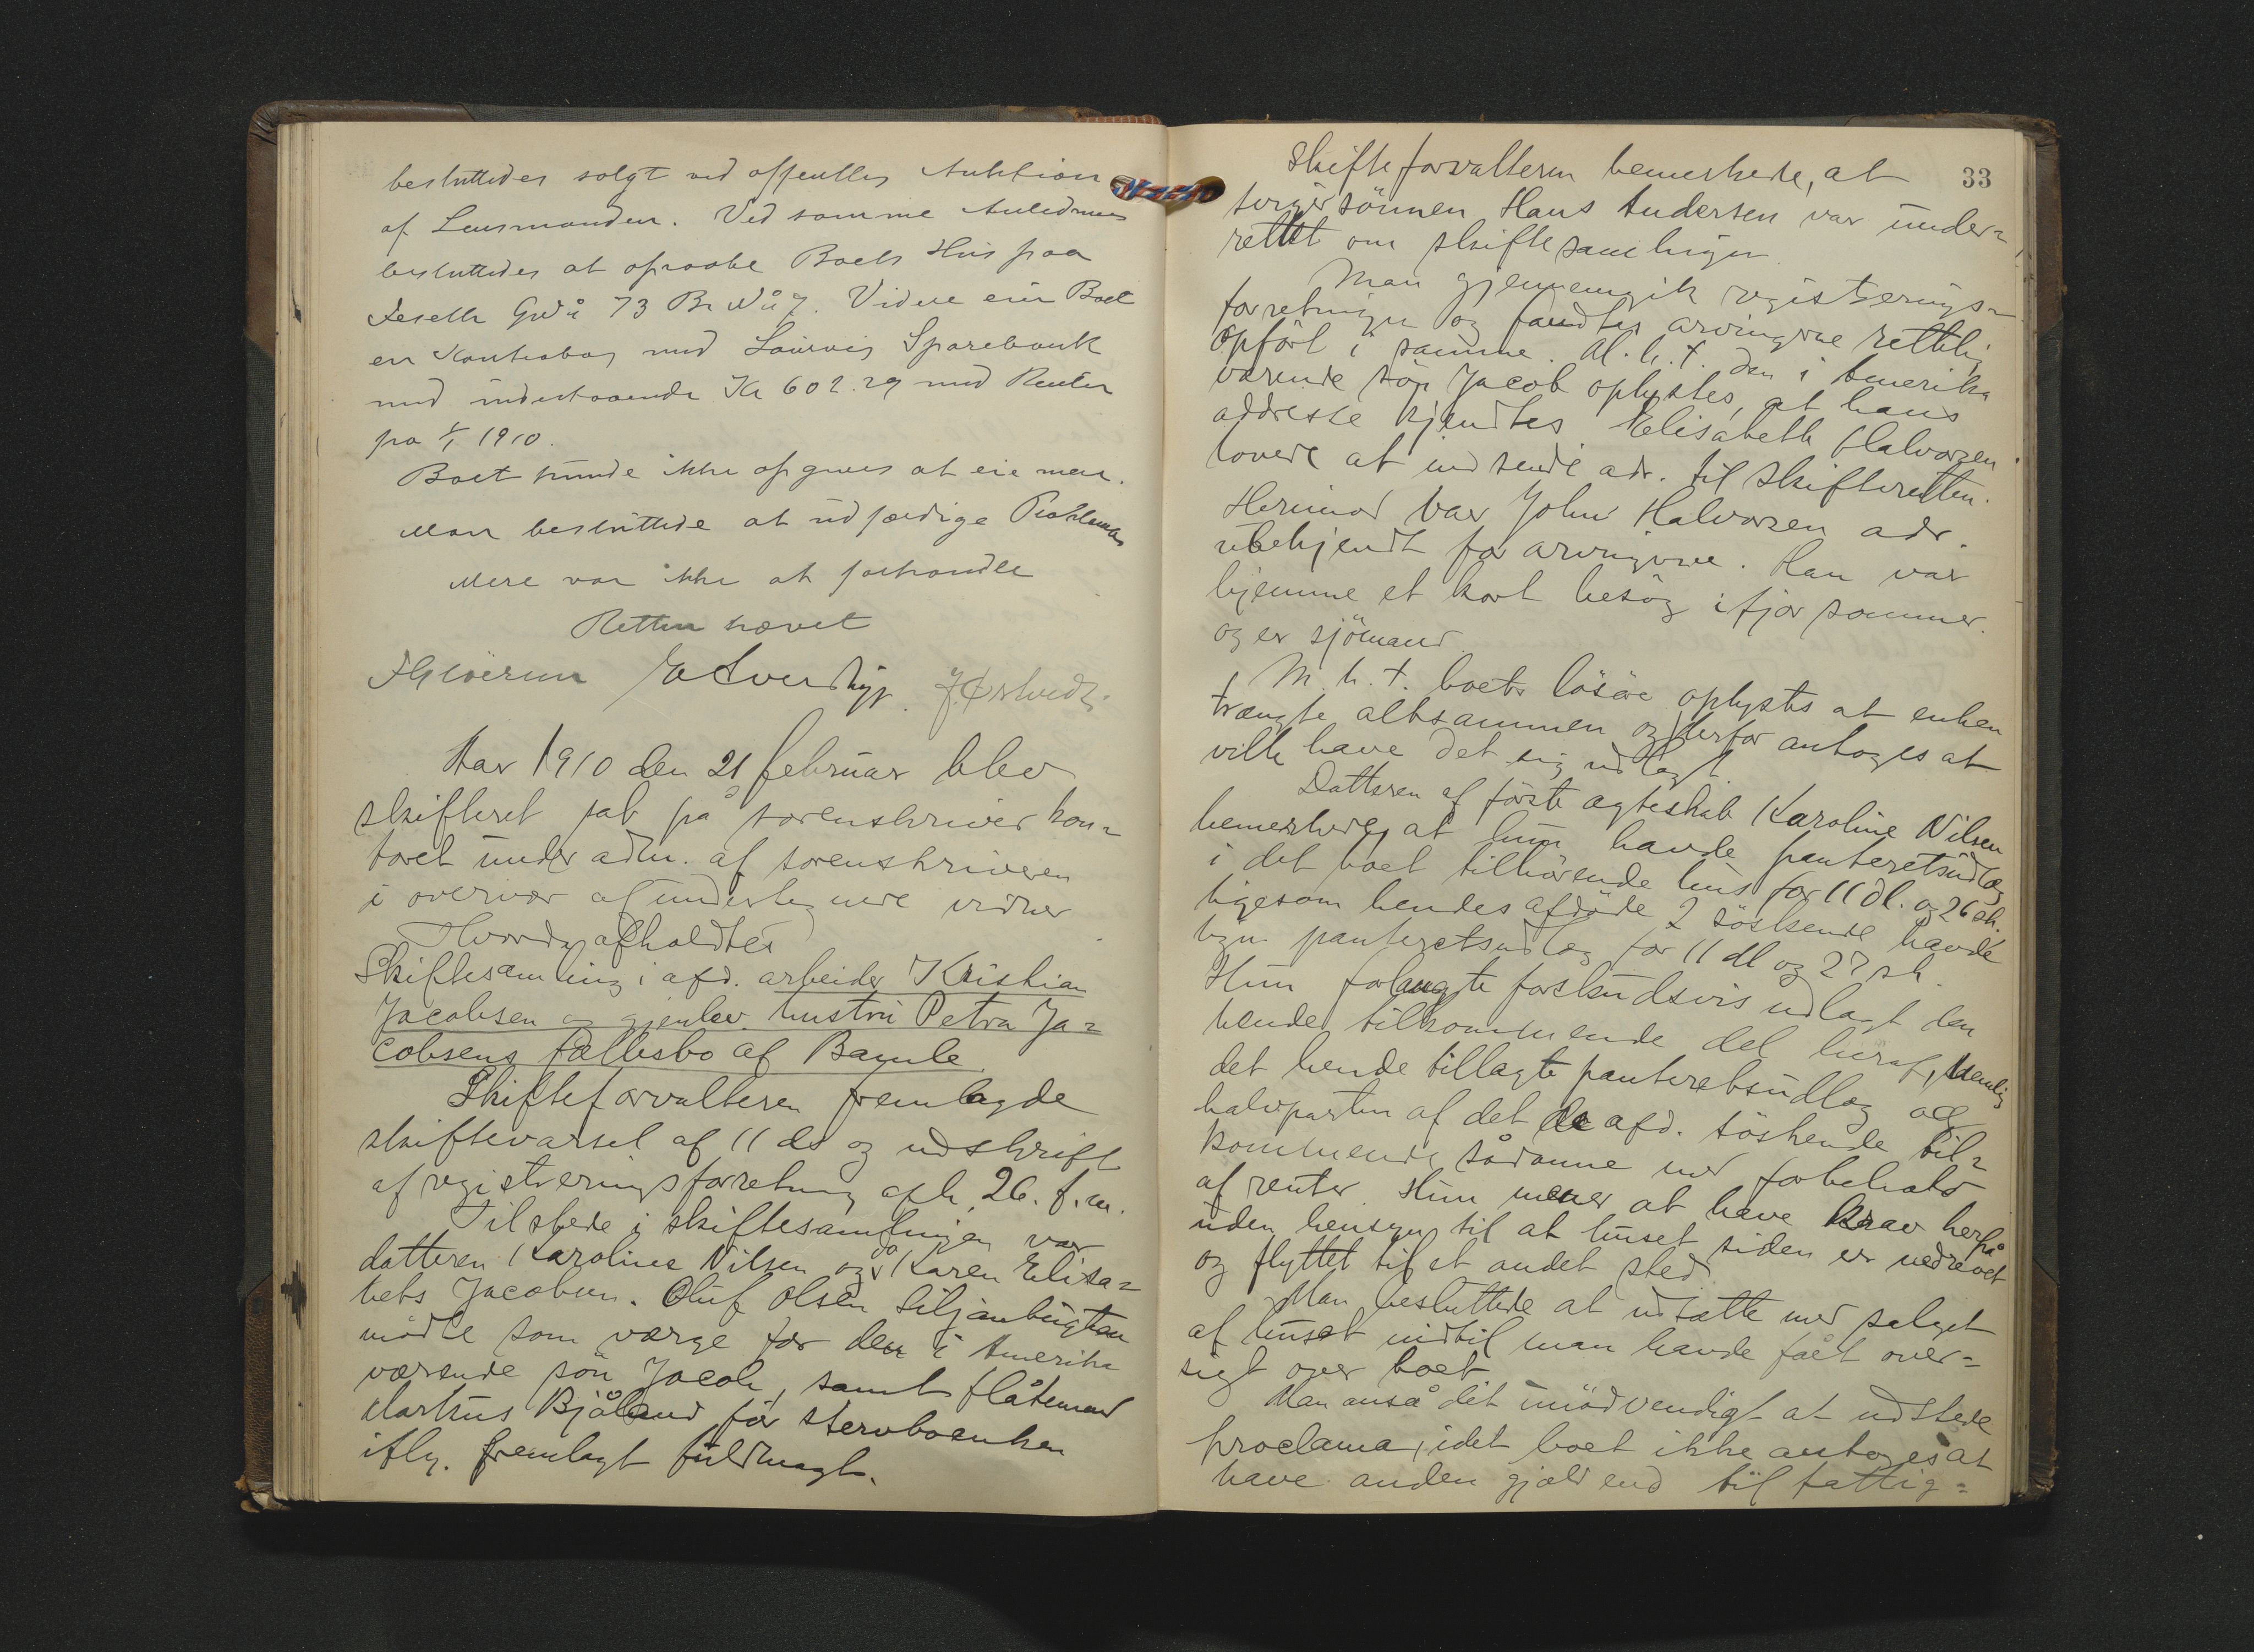 besluttedes solgt ved offentlig Auktion
af Lensmanden. Ved samme Anledning
besluttedes at opraabe Boets Hus paa
GrNr 73 Br Nr 7. Videre eier Boet
en Kontrabog med Laurvig Sparebank
med indestaaende Kr 602.29 med Renter
fra 1/1 1910.
Boet kunde ikke opgives at eie mere.
Man besluttede at udfærdige Proklama
Mere var ikke at forhandle
Retten hævet
Aar 1910 den 21 februar blev
skifteret sat på sorenskriverkon=
toret under adm. af sorenskriveren
i overvær af undertegnede vidner
Hvorda afholdtes
Skiftesamling i afd. arbeider Kristian
Jacobsen og gjenlev. hustru Petra Ja=
cobsens fællesbo af Bamle.
Skifteforvalteren fremlagde
skiftevarsel af 11 ds og udskrift
af registreringsforretning afh. 26. f.m.
Tilstede i skiftesamlingen var
datteren Karoline Nilsen og Karen Elisa=
bets Jacobsen. Oluf Olsen Siljanbugten
mødte som værge for den i Amerika
værende søn Jacob, samt flåtemand
Markus Bjåland for stervboenken
iflg. fremlagt fuldmagt.
33
Skifteforvalteren bemerkede, at
svigersønnen Hans Andersen var under=
rettet om skiftesamlingen
Man gjennemgik registrerings=
forretningen og fandtes arvingerne rettelig
opført i samme. M.h.t. den i Amerika
værende søn Jacob oplystes, at hans
addresse kjendtes. Elisabeth Halvorsen
lovede at indsende adr. til skifteretten.
Herimod var John Halvorsen adr.
ubekjendt for arvingerne. Han var
hjemme et kort besøg ifjor sommer.
og er sjømand.
M.h.t. boets løsøre oplystes at enken
trængte altsammen og derfor antoges at
ville have det sig udlagt.
Datteren af første ægteskab Karoline Nilsen
bemerkede, at hun havde panteretsudlæg
i det boet tilhørende hus for 11 dl. og 26 sk.
ligesom hendes afdøde 2 søskende havde
panteretsudlæg for 11 dl og 27 sk.
Hun forlangte forskudsvis udlagt den
hende tilkommende del heraf, nemlig
det hende tillagte panteretsudlæg og
halvparten af det de afd. søskende til=
kommende sådanne med forbehold
af renter. Hun mener at have krav herpå
uden hensyn til at huset siden er nedrevet
og flyttet til et andet sted.
Man besluttede at udsætte med salget
af huset indtil man havde fået over=
sigt over boet.
Man anså det unødvendigt at udstede
proclama, idet boet ikke antoges at
have anden gjæld end til fattig=